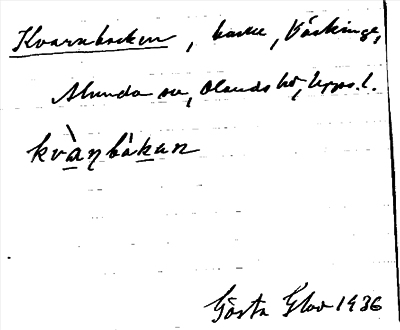 Kvarnbacken, backe, Väskinge,
Alunda sn, Olands hd, Upps. l.
kvànbàkan
Gösta Glov 1936